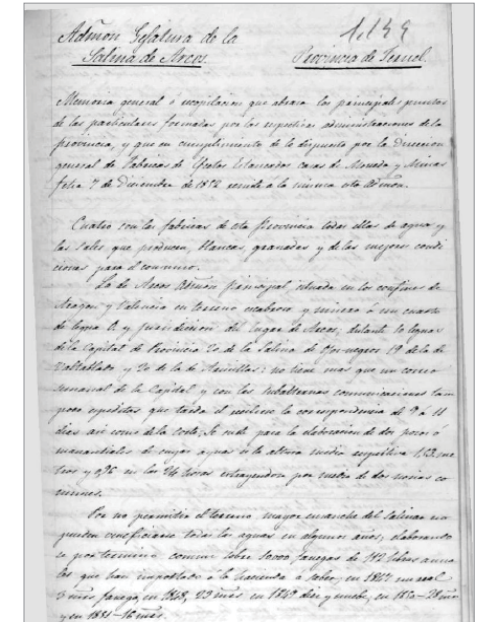 Admon Gefatura de la
Salina de Arcos.
Provincia de Teruel.
Memoria general ó recopilacion que abraza los principales puntos
de las particulares formadas por las respectivas administraciones de la
provincia, y que en cumplimiento de lo dispuesto por la Direccion
general de Fabricas de Efectos Estancados casas de Moneda y Minas
fecha 7 de Diciembre de 1852 remite á la misma esta Admon.
Cuatro son las fabricas de esta Provincia todas ellas de agua y
las sales que producen, blancas, granadas y de las mejores condi
ciones para el consumo.
La de Arcos Admon principal situada en los confines de
Aragon y Valencia en terreno escabroso y minero á un cuarto
de legua y jurisdicion del lugar de Arcos; distante leguas
de la Capital de Provincia 20 de la Salina de Ojosnegros 19 de la de
Valtablado y 20 de la de Armillas: no tiene mas que un correo
semanal de la Capital y con las subalternas comunicaciones tam
poco espeditas que tarda el recibirse la correspondencia de 9 á 11
dias asi como de la Corte. Se surte para la elaboracion de dos pozos ó
manantiales de cuyas aguas es la altura media respectiva
y en las 24 horas por medio de dos norias co
munes.
Por no permitir el terreno mayor ensanche del Salinar no
pueden beneficiarse todas las aguas en algunos años; elaborando
se por termino comun sobre 10000 fanegas de 112 libras anua
les que han importado á la hacienda á saber; en 1847 un real
3 mrs fanega, en 1848, 23 mrs en 1849 diez y nueve, en 1850-28 mrs
y en 1851-16 mrs.